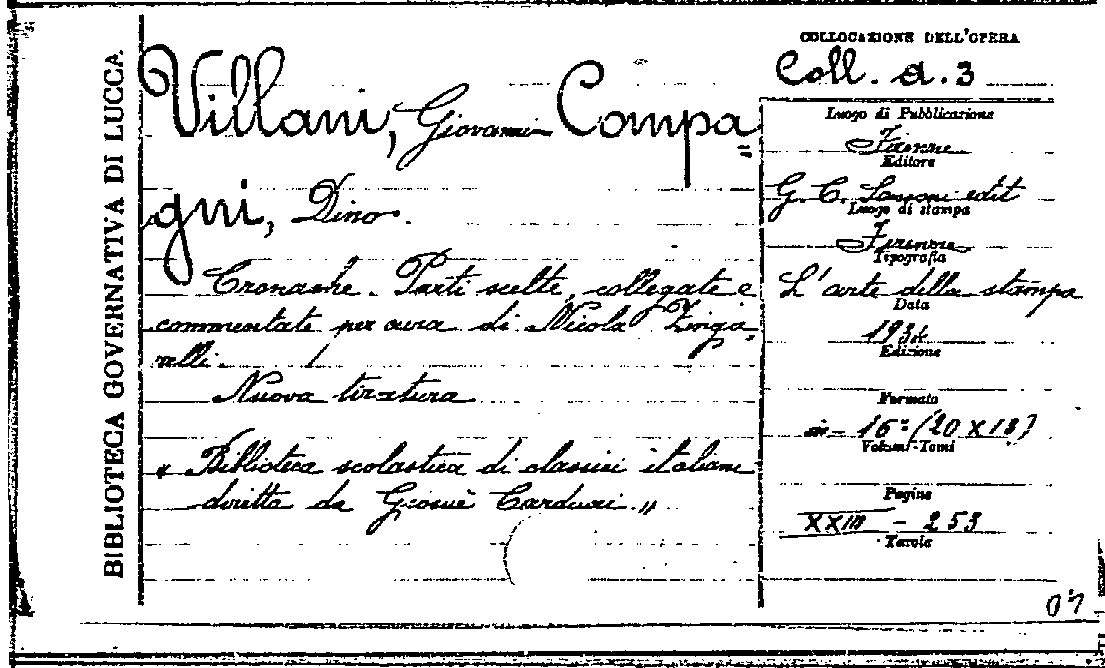 BIBLIOTECA GOVERNATIVA DI LUCCA
Villani, Giovanni Compa
gni, Dino.
Cronache. Parti scelte, collegate e
commentate per cura di Nicola Zinga-
relli.
Nuova tiratura
« Biblioteca scolastica di classici italiani
diretta da Giosuè Carducci. »
COLLOCAZIONE DELL'OPERA
Coll. a. 3
Luogo di Pubblicazione
Firenze
Editore
G. C. Sansoni edit
Luogo di stampa
Firenze
Tipografia
L'arte della stampa
Data
Edizione
Formato
in - 16° (20 X 13)
Volumi-Tomi
Pagine
XXIII - 253
Tavole